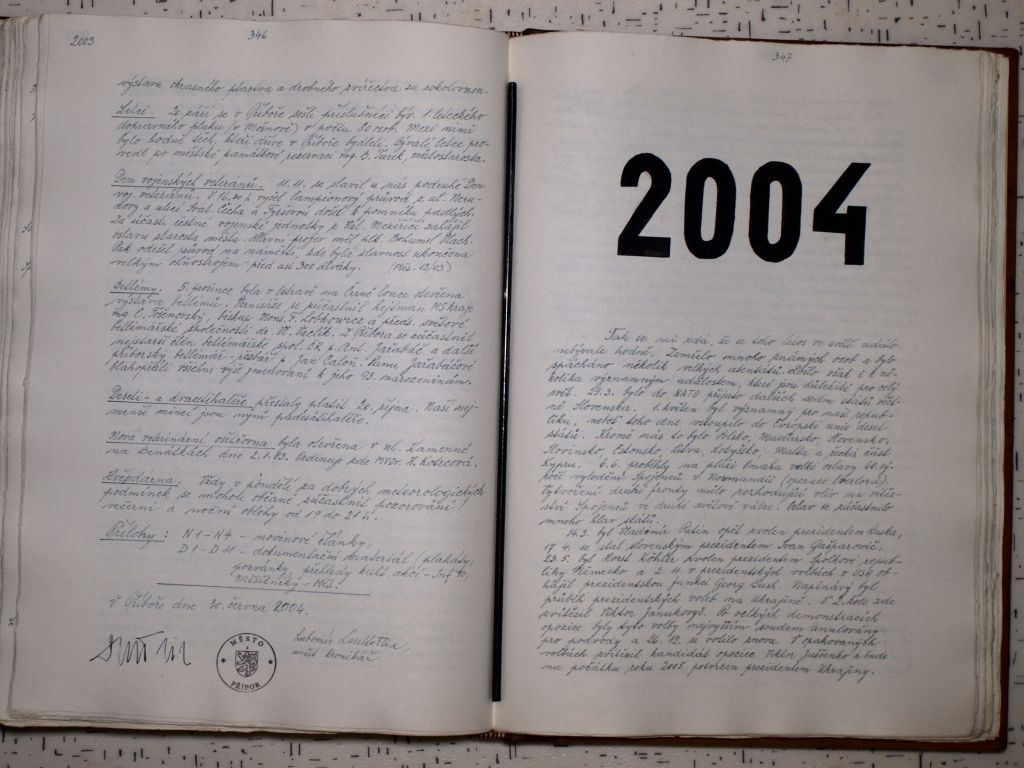 2003
346
výstavu okrasného ptactva a drobného zvířectva za sokolovnou.
Letci. 20. září se v Příboře sešli příslušníci býv. 1. leteckého
dopravního pluku (v Mošnově) v počtu 80 osob. Mezi nimi
bylo hodně těch, kteří dříve v Příboře bydleli. Bývalé letce pro-
vedl po městské památkové rezervaci ing. B. Turek, místostarosta.
Den vojenských veteránů. 11.11. se slavil u nás podruhé Den
voj. veteránů. V 16,30 h vyšel lampionový průvod z ul. Neru-
dovy a ulicí Svat. Čecha a Tyršovou došel k pomníku padlých.
Za účasti čestné vojenské jednotky z Val. Meziříčí zahájil
oslavu starosta města. Hlavní projev měl plk. Bohumil Vlach.
Pak odešel průvod na náměstí, kde byla slavnost ukončena
velkým ohňostrojem před asi 300 diváky. (Měs. 12/03)
Betlémy. 5. prosince byla v Ostravě na Černé louce otevřena
výstava betlémů. Vernisáže se zúčastnil hejtman MS kraje
ing. E. Tošenovský, biskup Mons. F. Lobkowicz a předs. světové
betlemářské společnosti dr. V. Vaclík. Z Příbora se zúčastnil
nejstarší člen betlemářské spol. ČR p. Ant. Jarabáč a další
příborský betlemář - řezbář p. Jan Caloň. Panu Jarabáčovi
blahopřáli všichni výše jmenovaní k jeho 93. narozeninám.
Deseti- a dvacetihaléře přestaly platit 20. října. Naší nej-
menší mincí jsou nyní padesátihaléře.
Nová veterinární ošetřovna byla otevřena v ul. Kamenné
na Benátkách dne 2.1.03. Ordinuje zde MVDr. H. Kotrcová.
Hvězdárna. Vždy v pondělí za dobrých meteorologických
podmínek se mohou občané zúčastnit pozorování
večerní a noční oblohy od 19 do 21 h.
Přílohy: N1 - N4 - novinové články,
D1 - D11 - dokumentační materiál (plakáty,
pozvánky, přehledy kult. akcí - Inf to,
Měsíčníky - Měs.
V Příboře dne 30. června 2004.
MĚSTO
PŘÍBOR
Lubomír
měst. kronikář
347
2004
Tak se mi zdá, že se toho letos ve světě událo
nebývale hodně. Zemřelo mnoho známých osob a bylo
spácháno několik velkých atentátů. Došlo však i k ně-
kolika významným událostem, které jsou důležité pro celý
svět. 29.3. bylo do NATO přijato dalších sedm států včet-
ně Slovenska. 1. květen byl významný pro naši repub-
liku, neboť toho dne vstoupilo do Evropské unie deset
států. Kromě nás to bylo Polsko, Maďarsko, Slovensko,
Slovinsko, Estonsko, Litva, Lotyšsko, Malta a řecká část
Kypru. 6.6. proběhly na pláži Omaha velké oslavy 60. vý-
ročí vylodění Spojenců v Normandii (operace Overlord).
Vytvoření druhé fronty mělo rozhodující vliv na vítěz-
ství Spojenců ve druhé světové válce. Oslav se zúčastnilo
mnoho hlav států.
14.3. byl Vladimír Putin opět zvolen prezidentem Ruska,
17.4. se stal slovenským prezidentem Ivan Gašparovič,
23.5. byl Horst Köhler zvolen prezidentem Spolkové repub-
liky Německo a 2.11. v prezidentských volbách v USA ob-
hájil prezidentskou funkci Georg Bush. Napínavý byl
průběh prezidentských voleb na Ukrajině. V 2. kole zde
zvítězil Viktor Janukovyč. Po velkých demonstracích
opozice byly tyto volby nejvyšším soudem anulovány
pro podvody a 26.12. se volilo znovu. V opakovaných
volbách zvítězil kandidát opozice Viktor Juščenko a bude
na počátku roku 2005 potvrzen prezidentem Ukrajiny.